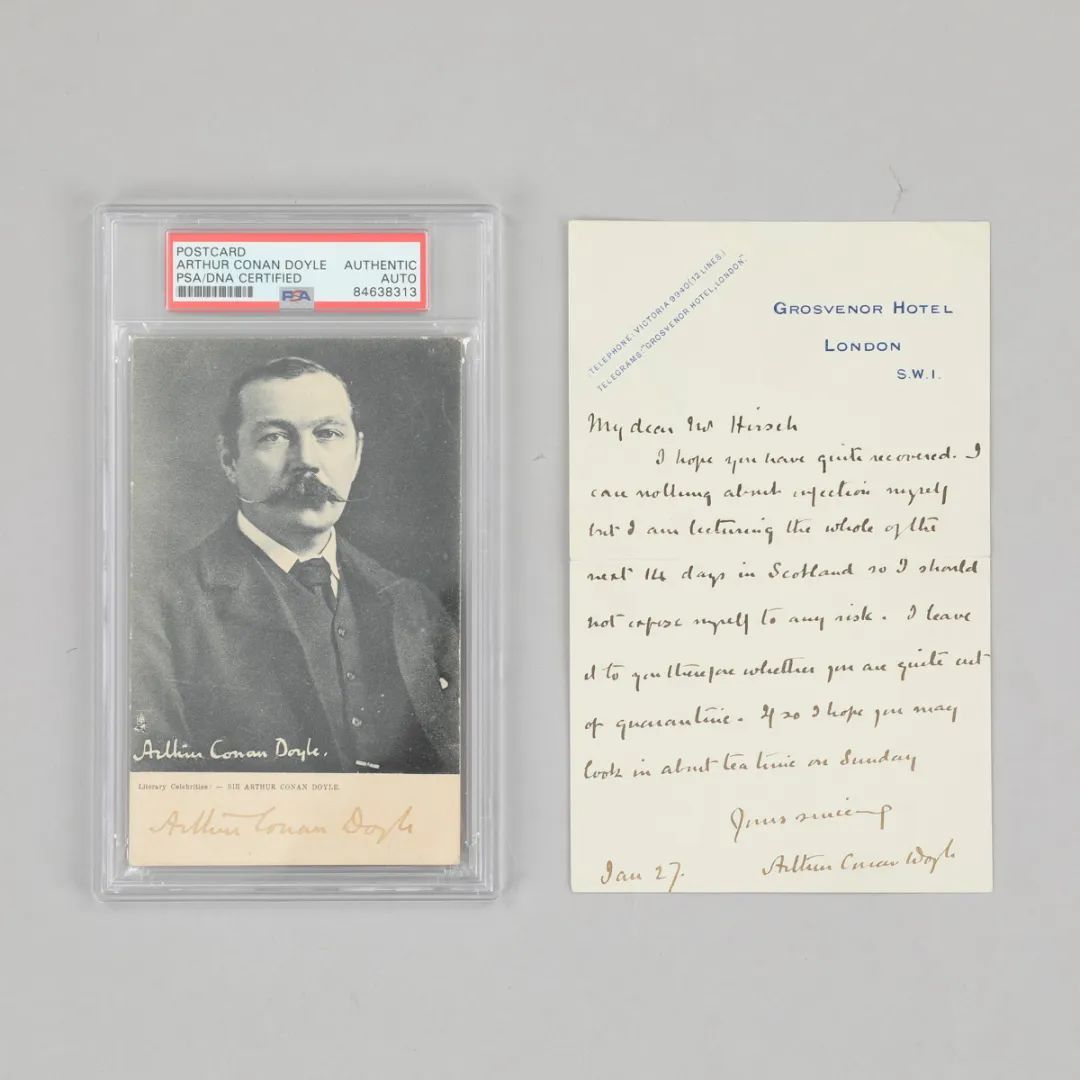 POSTCARD
ARTHUR CONAN DOYLE AUTHENTIC
PSA/DNA CERTIFIED AUTO
PSA 84638313
Arthur Conan Doyle.
Literary Celebrities: — SIR ARTHUR CONAN DOYLE.
Arthur Conan Doyle
TELEPHONE: VICTORIA 9940 (12 LINES.)
TELEGRAMS: "GROSVENOR HOTEL, LONDON".
GROSVENOR HOTEL
LONDON
S.W.1.
My dear Mr Hirsch
I hope you have quite recovered. I
care nothing about infection myself
but I am lecturing the whole of the
next 14 days in Scotland so I should
not expose myself to any risk. I leave
it to you therefore whether you are quite out
of quarantine. If so I hope you may
look in about tea time on Sunday
Yours sincerely
Arthur Conan Doyle
Jan 27.